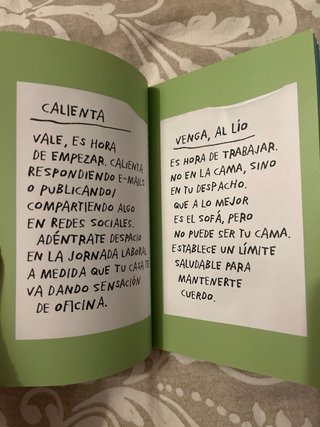 CALIENTA
VALE, ES HORA
DE EMPEZAR. CALIENTA
RESPONDIENDO E-MAILS
O PUBLICANDO/
COMPARTIENDO ALGO
EN REDES SOCIALES.
ADÉNTRATE DESPACIO
EN LA JORNADA LABORAL
A MEDIDA QUE TU CASA TE
VA DANDO SENSACIÓN
DE OFICINA.
VENGA, AL LÍO
ES HORA DE TRABAJAR.
NO EN LA CAMA, SINO
EN TU DESPACHO.
QUE A LO MEJOR
ES EL SOFÁ, PERO
NO PUEDE SER TU CAMA.
ESTABLECE UN LÍMITE
SALUDABLE PARA
MANTENERTE
CUERDO.